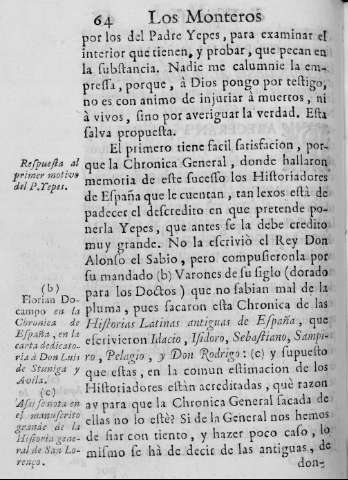 64 Los Monteros
por los del Padre Yepes, para examinar el
interior que tienen, y probar, que pecan en
la substancia. Nadie me calumnie la em-
pressa, porque, à Dios pongo por testigo,
no es con animo de injuriar à muertos, ni
à vivos, sino por averiguar la verdad. Esta
salva propuesta.
El primero tiene facil satisfacion, por-
que la Chronica General, donde hallaron
memoria de este sucesso los Historiadores
de España que le cuentan, tan lexos està de
padecer el descredito en que pretende po-
nerla Yepes, que antes se la debe credito
muy grande. No la escriviò el Rey Don
Alonso el Sabio, pero compusieronla por
su mandado (b) Varones de su siglo (dorado
para los Doctos) que no sabian mal de la
pluma, pues sacaron esta Chronica de las
Historias Latinas antiguas de España, que
escrivieron Idacio, Isidoro, Sebastiano, Sampi-
ro, Pelagio, y Don Rodrigo: (c) y supuesto
que estas, en la comun estimacion de los
Historiadores estàn acreditadas, què razon
av para que la Chronica General sacada de
ellas no lo estè? Si de la General nos hemos
de fiar con tiento, y hazer poco caso, lo
mismo se hà de decir de las antiguas, de
don-
Respuesta al
primer motivo
del P. Yepes.
(b)
Florian Do-
campo en la
Chronica de
España, en la
carta dedicato-
ria à Don Luis
de Stuniga y
Avila.
(c)
Assi se nota en
el manuscrito
grande de la
Historia gene-
ral de San Lo-
renço.